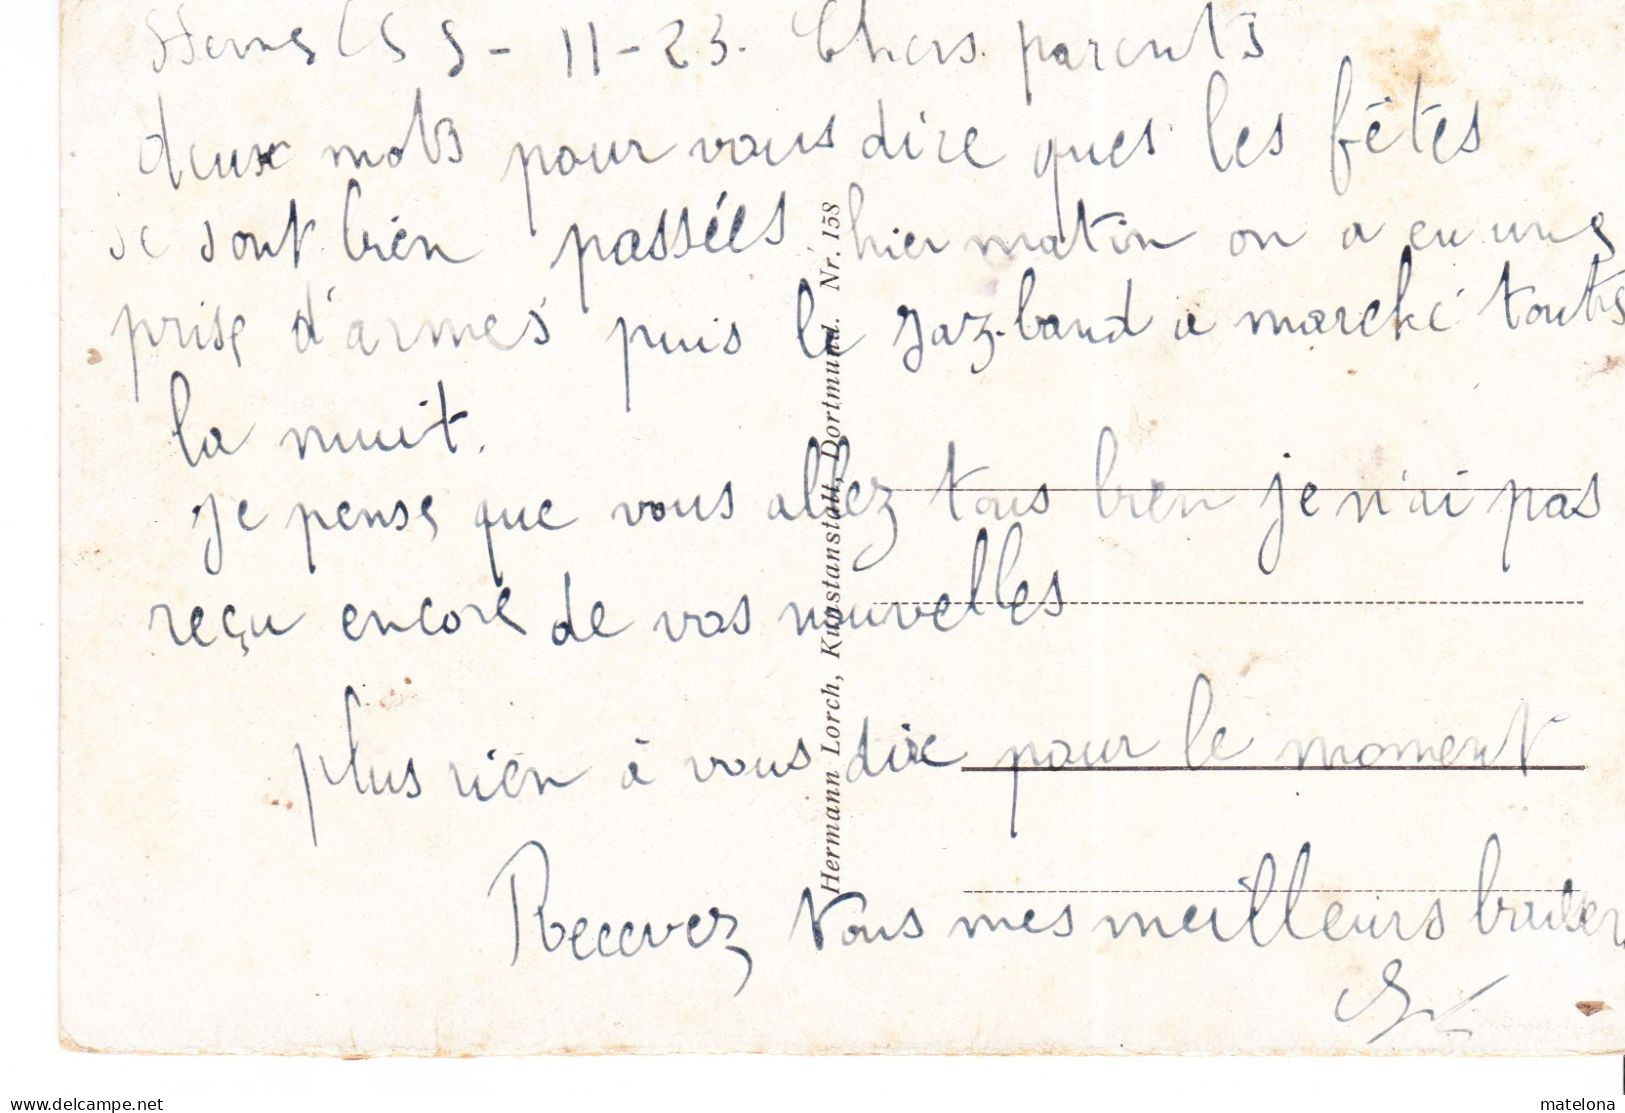 5-11-23. Chers parents
deux mots pour vous dire ques les fêtes
se sont bien passées hier matin on a eu une
prise d'armes puis le Jaz-band a marché toute
la nuit.
je pense que vous allez tous bien je n'ai pas
reçu encore de vos nouvelles
plus rien à vous dire pour le moment
Recevez Vous mes meilleurs baisers
Hermann Lorch, Kunstanstalt, Dortmund. Nr. 158
www.delcampe.net
matelona